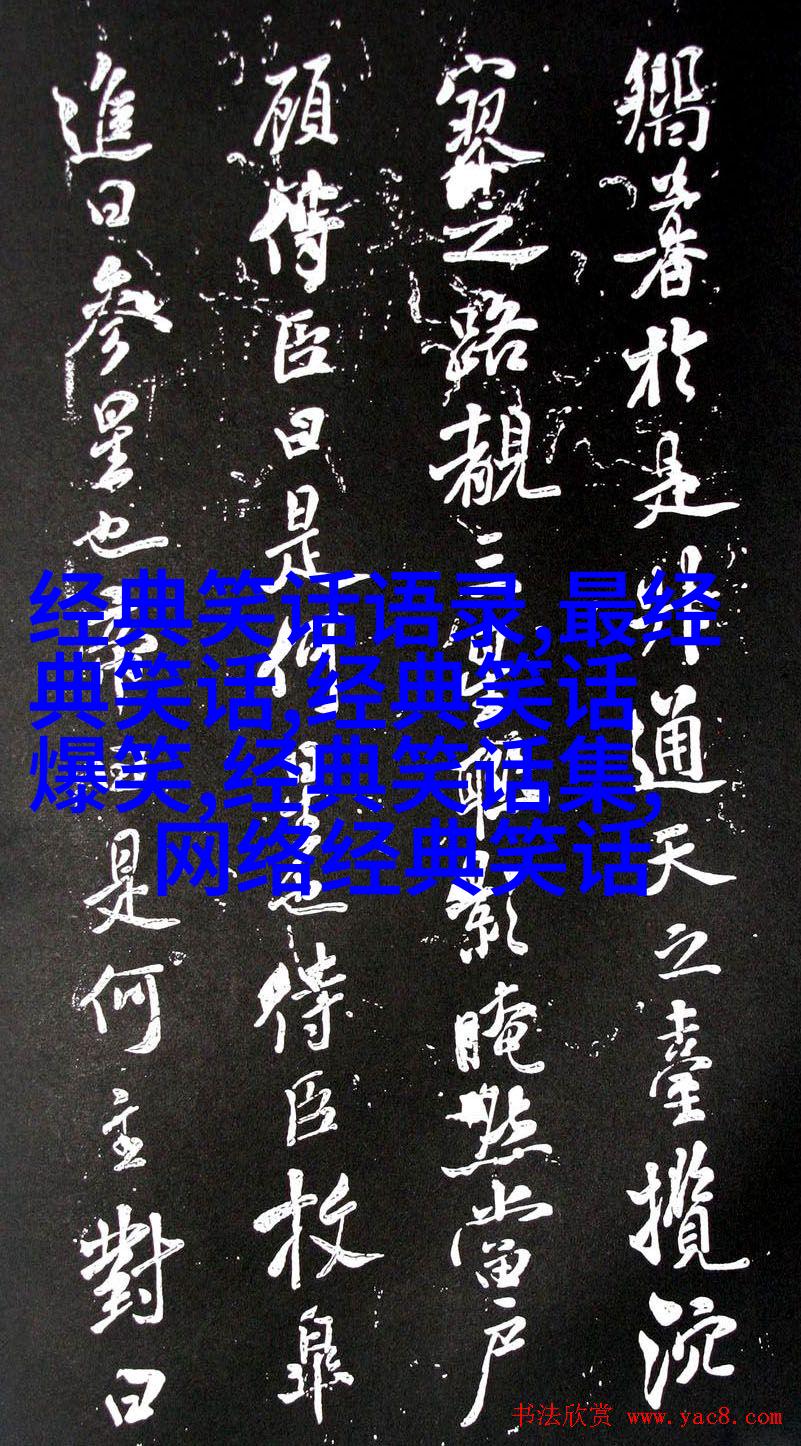 於是升通天之臺攬
寥之路三星聯影晻然當戶
顧侍臣曰是何星也侍臣枚皐
進曰參星也帝曰是何主對曰
经典笑话语录,最经
典笑话,经典笑话
爆笑,经典笑话集,
网络经典笑话
书法欣赏 www.yac8.com